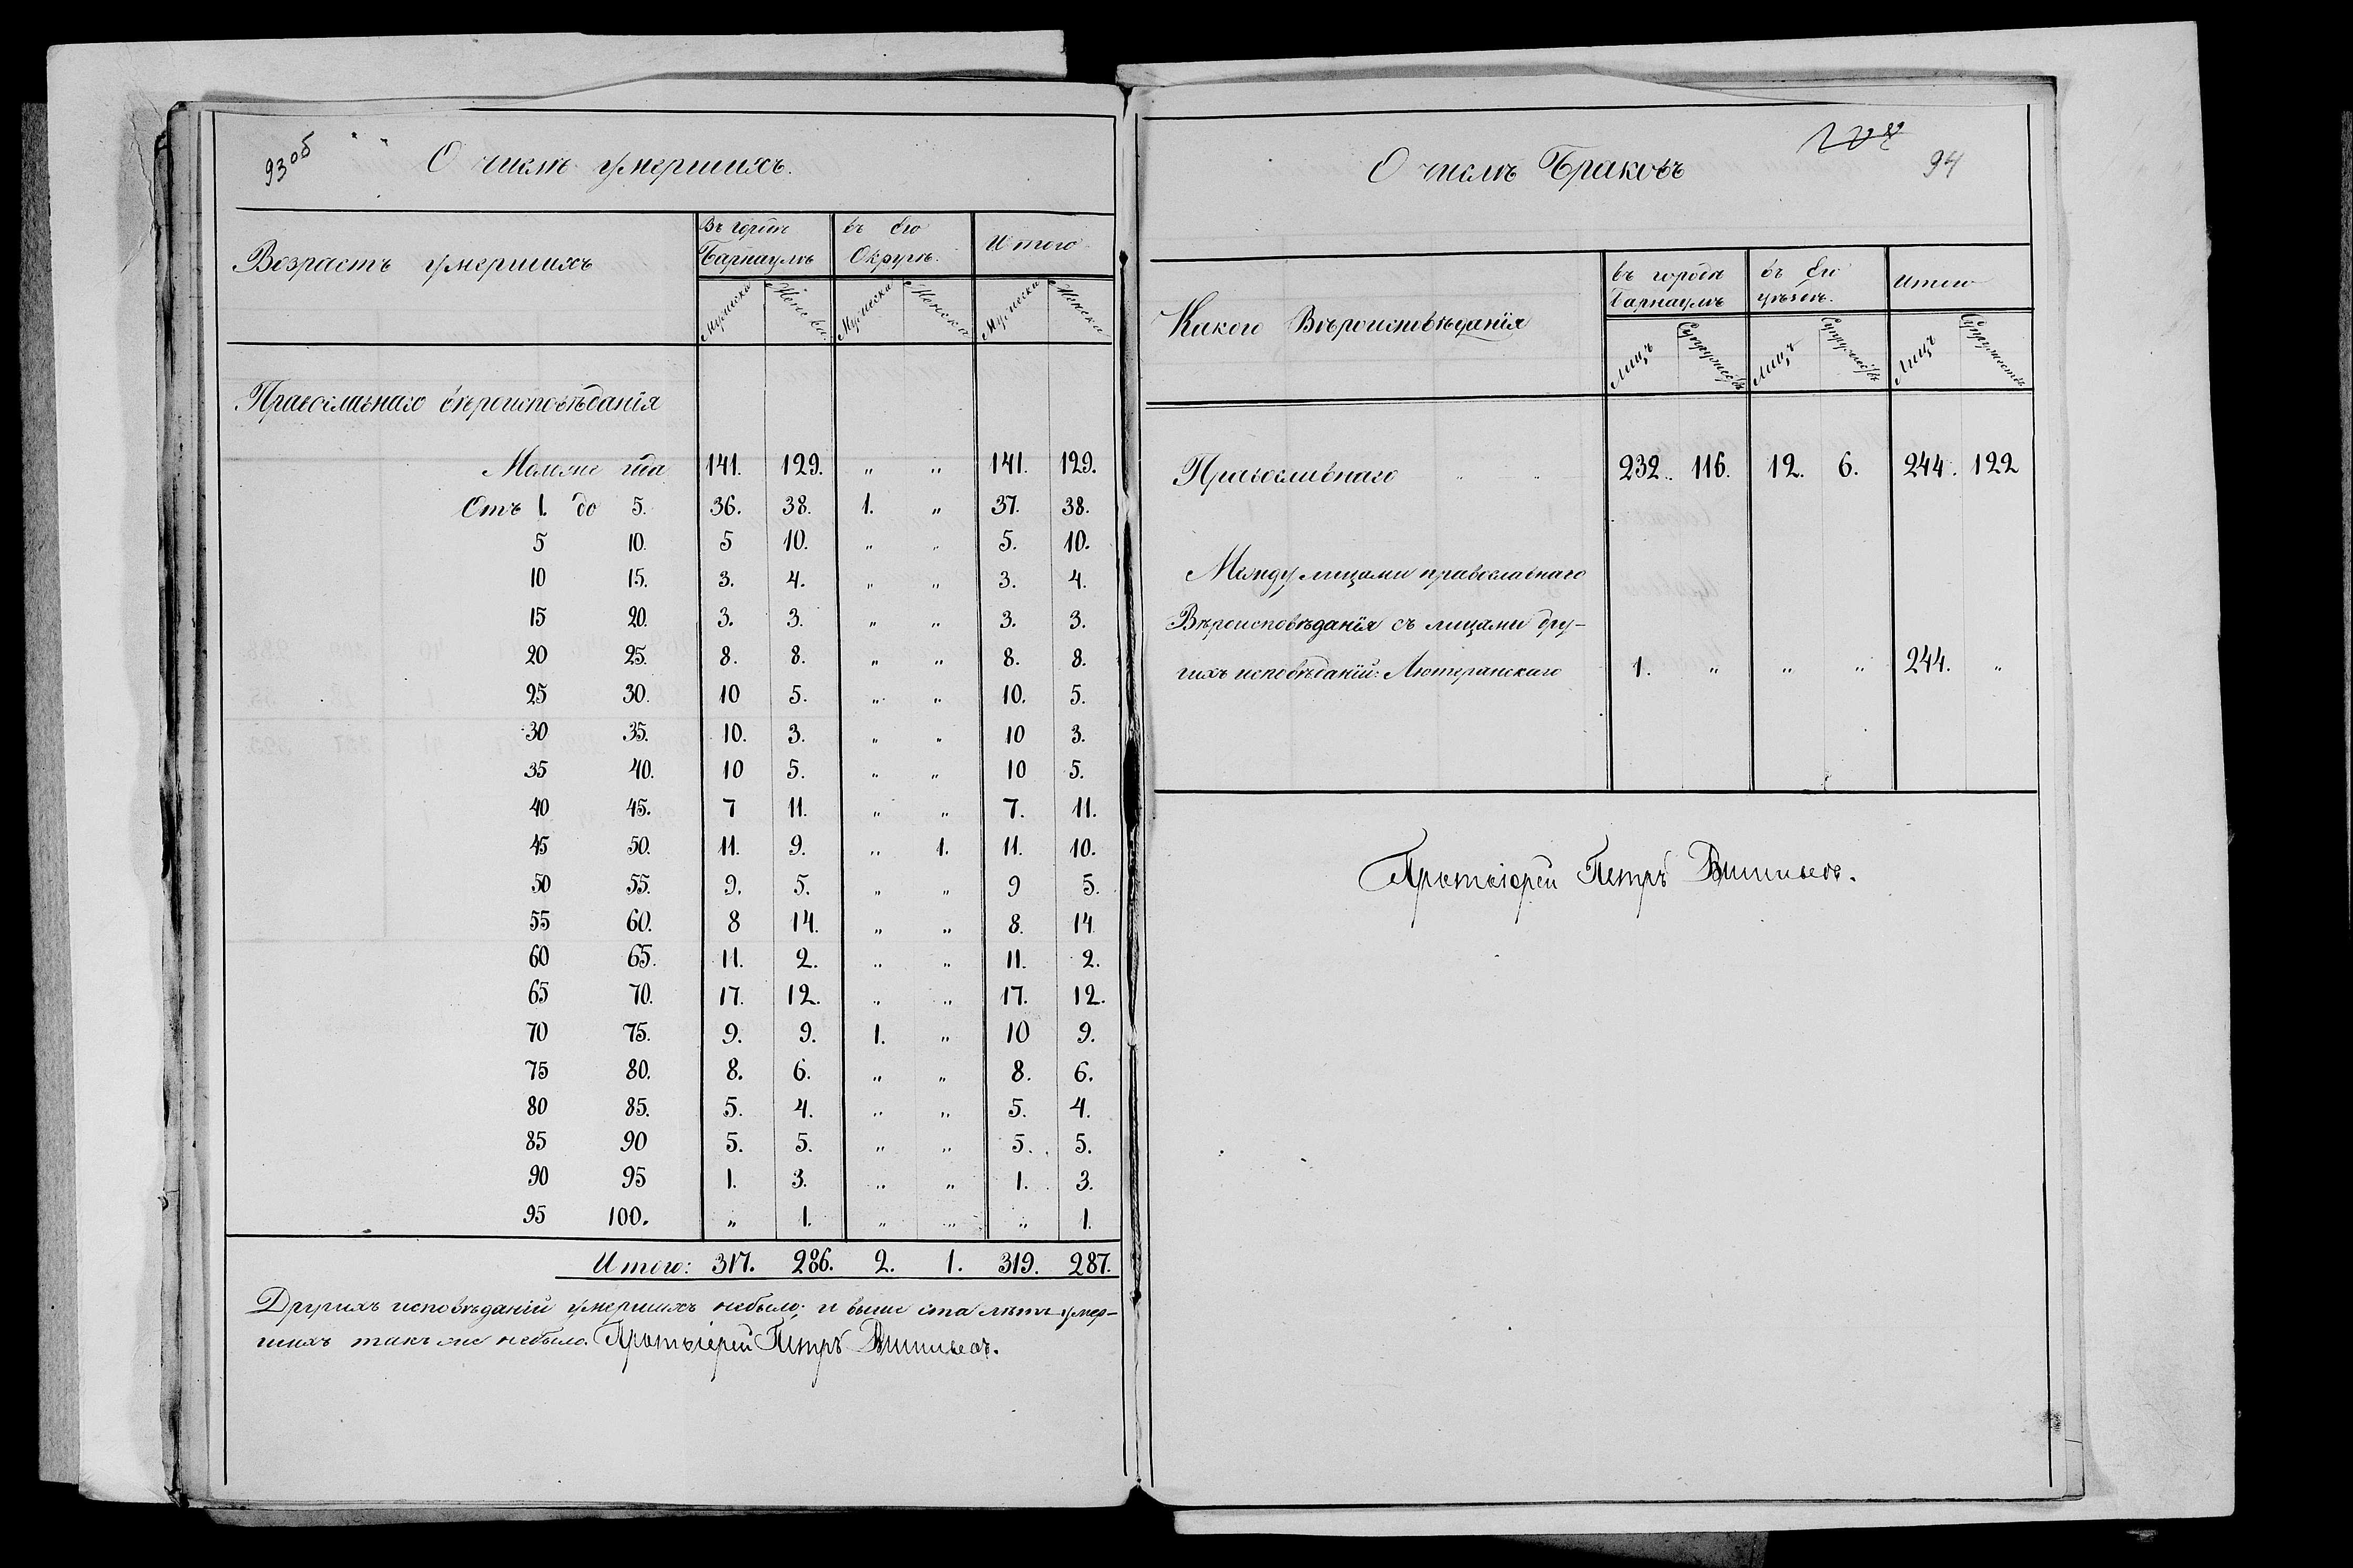 93 об
О числѣ умершихъ.
Возрастъ умершихъ
Въ городѣ Барнаулѣ
въ Его Округѣ.
Итого
Мужеска Женска Мужеска Женска Мужеска Женска
Православнаго вѣроисповѣданія
Моложе года 141. 129. „ „ 141. 129.
Отъ 1. до 5. 36. 38. 1. „ 37. 38.
5 10. 5 10. „ „ 5. 10.
10 15. 3. 4. „ „ 3. 4.
15 20. 3. 3. „ „ 3. 3.
20 25. 8. 8. „ „ 8. 8.
25 30. 10 5. „ „ 10. 5.
30 35. 10. 3. „ „ 10 3.
35 40. 10 5. „ „ 10 5.
40 45. 7 11. „ „ 7. 11.
45 50. 11. 9. „ 1. 11. 10.
50 55. 9. 5. „ „ 9 5.
55 60. 8 14. „ „ 8. 14
60 65. 11. 2. „ „ 11. 2.
65 70. 17. 12. „ „ 17. 12.
70 75. 9. 9. 1. „ 10 9.
75 80. 8. 6. „ „ 8. 6.
80 85. 5. 4. „ „ 5. 4.
85 90 5. 5. „ „ 5. 5.
90 95 1. 3. „ „ 1. 3.
95 100. „ 1. „ „ „ 1.
Итого: 317. 286. 2. 1. 319. 287.
Другихъ исповѣданій умершихъ небыло; и выше ста лѣтъ умер-
шихъ такъ же небыло. Протоіерей Петръ
94
О числѣ Браковъ
Какого Вѣроисповѣданія
въ городѣ Барнаулѣ
въ Его уѣздѣ.
Итого
Лицъ Супружествъ Лицъ Супружествъ Лицъ Супружествъ
Православнаго 232. 116. 12. 6. 244. 122
Между лицами православнаго
Вѣроисповѣданія съ лицами дру-
гихъ исповѣданій: Лютеранскаго 1. „ „ „ 244. „
Протоіерей Петръ